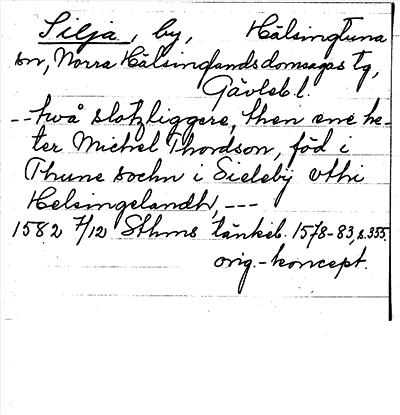 Silja, by, Hälsingtuna
sn, Norra Hälsinglands domsagas tg,
Gävleb. l.
-- två slotzliggere, then ene he-
ter Michel Thordson, föd i
Thune sochn i Sieleby vthi
Helsingelandh, ---
1582 7/12 Sthms tänkeb. 1578-83, s. 355.
orig.-koncept.